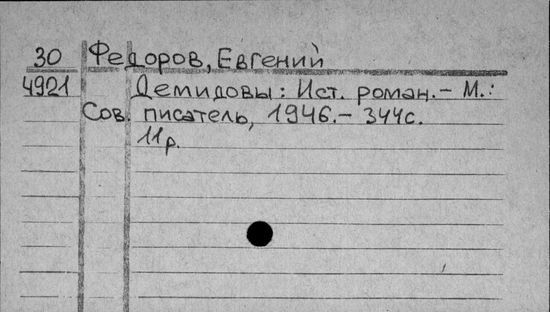 30 Федоров, Евгений
4921 Демидовы: Ист. роман.- М.:
Сов. писатель, 1946.- 344с.
11р.